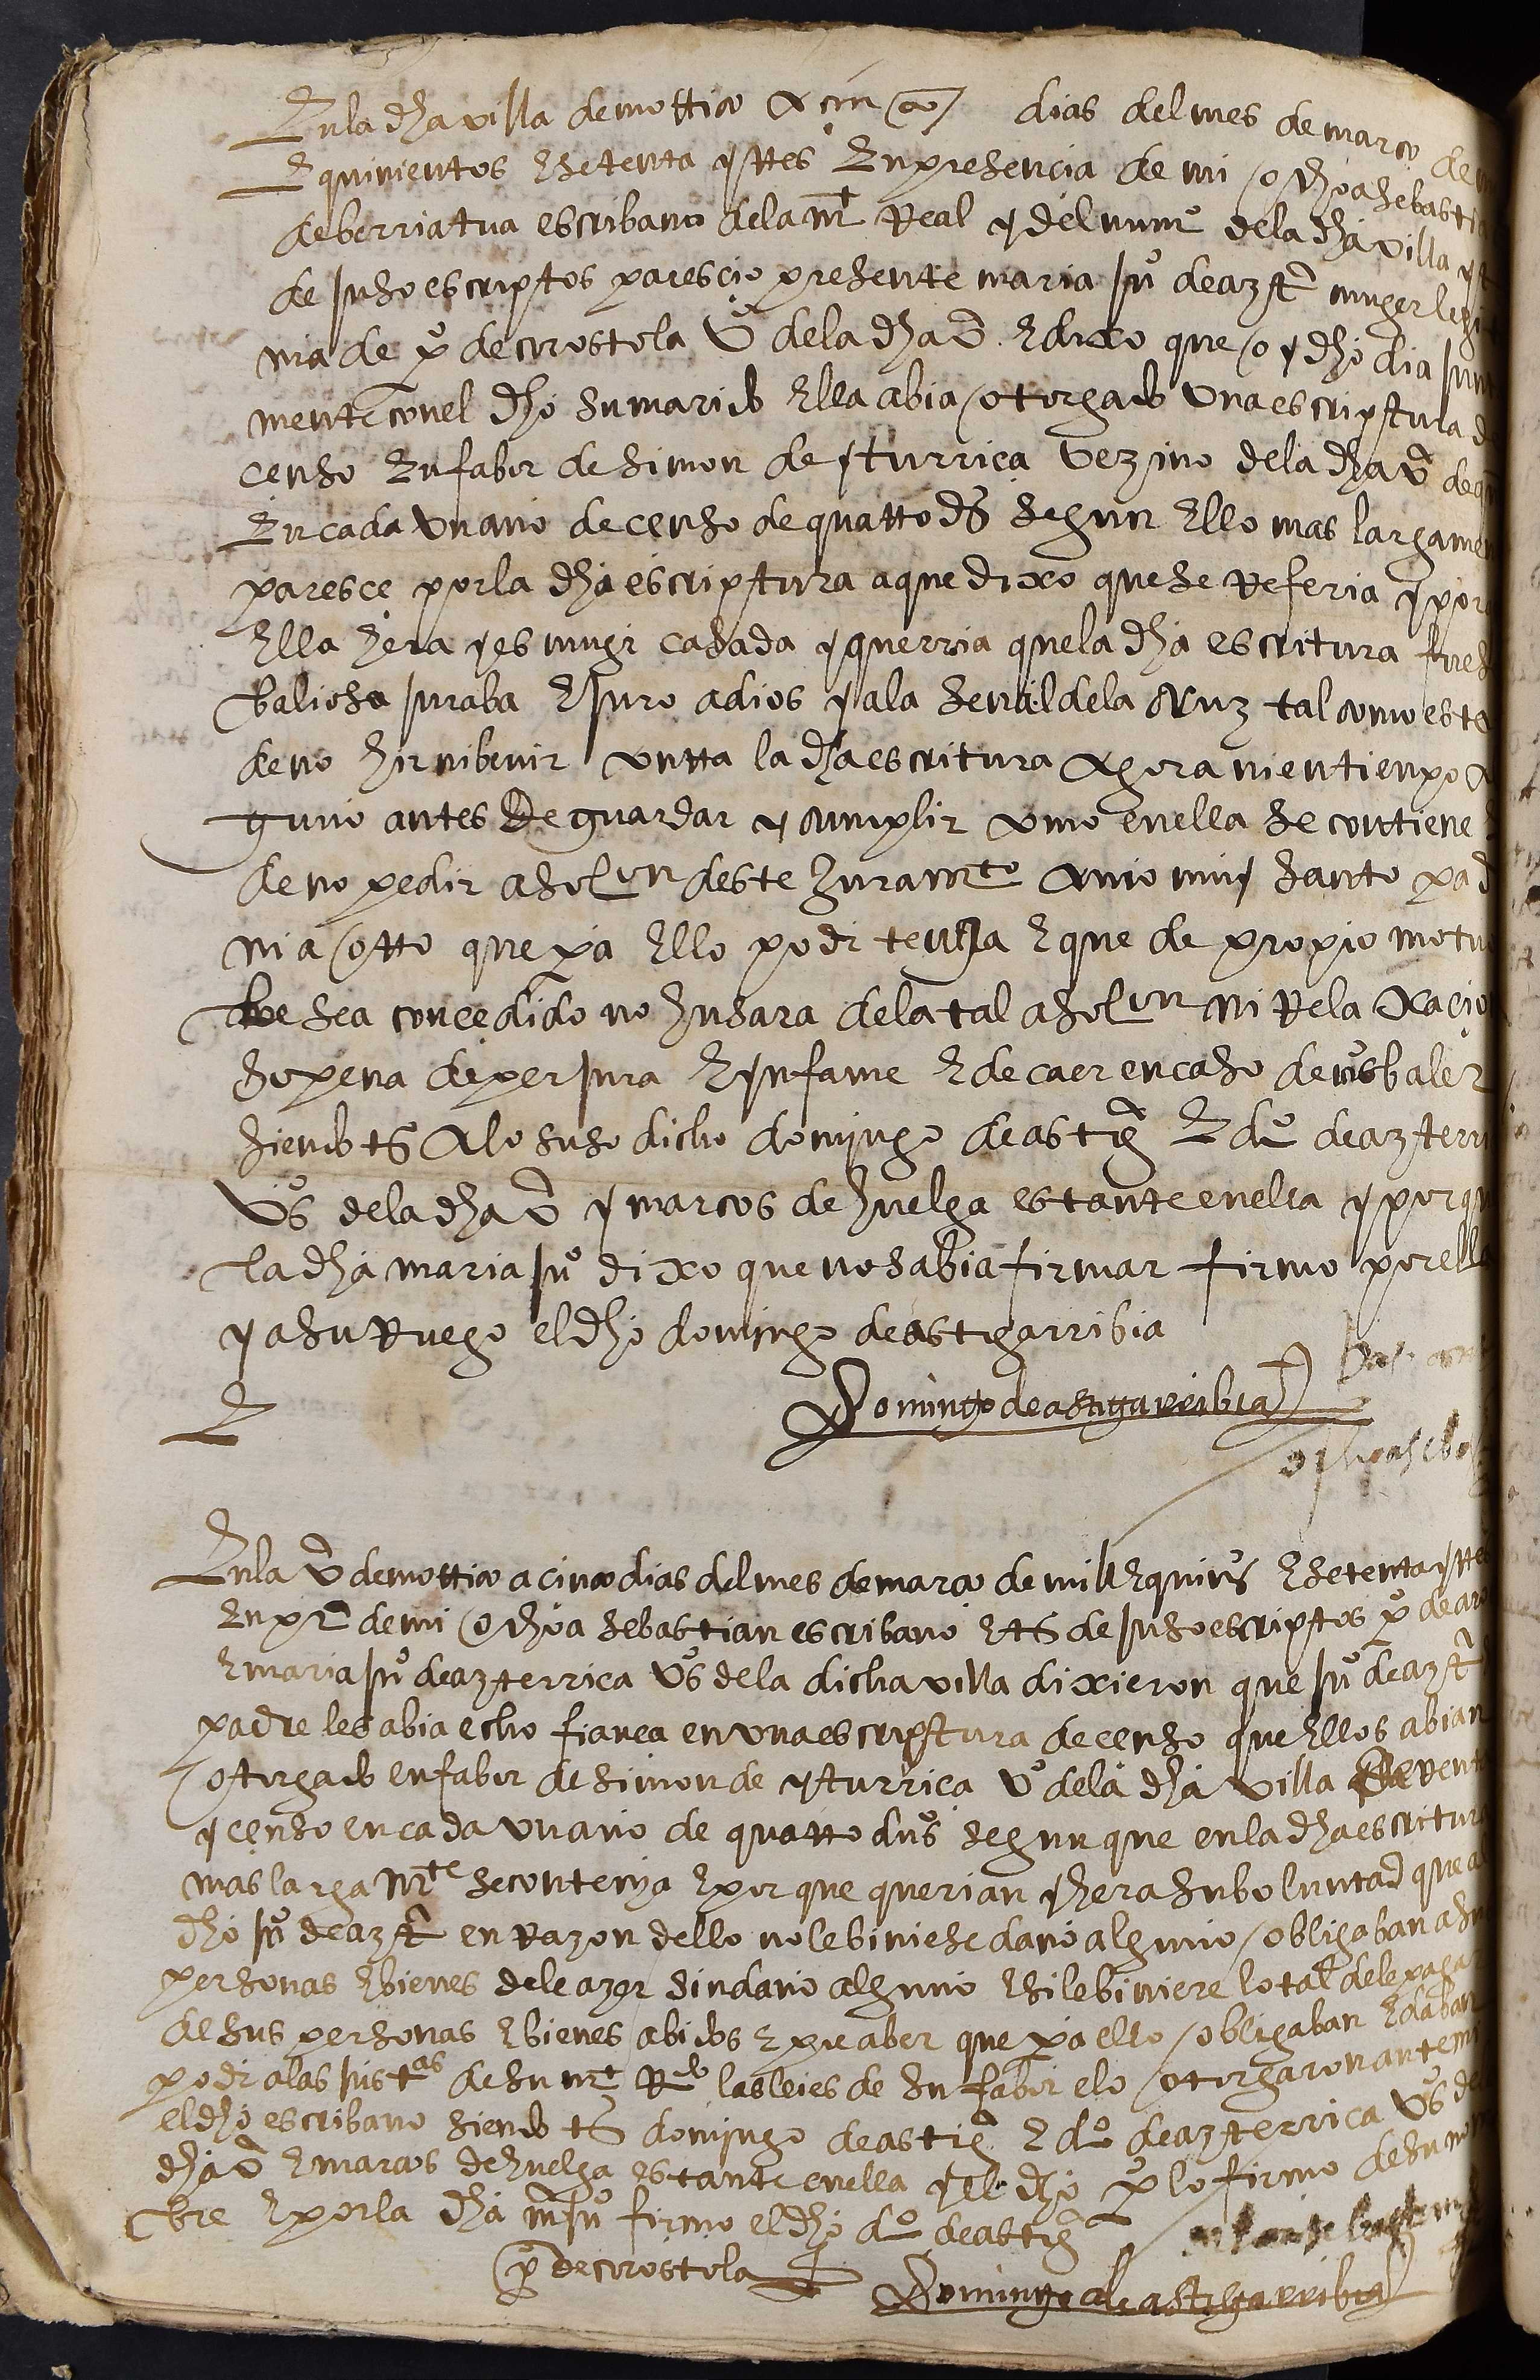 En la dha villa de motrico a cinco dias del mes de março de
E quinientos E setenta y tres En presencia de mi ochoa sebastia
de berriatua escribano de la mt Real y del numo de la dha villa y
de juso escriptos parescio presente maria juo de azte muger legi
ma de po de arostola vo de la dha va E dixo que oy dho dia
mente con el dho su marido Ella abia otorgado una escriptura d
censo En fabor de simon de yturriça vezino de la dha va de
En cada un año de censo de quatro ds segun Ello mas largamen
paresce por la dha escriptura a que dixo que se Referia y por
Ella hera y es mugr casada y querria que la dha escritura fues
baliosa juraba E juro a dios y a la señal de la cruz tal como esta
de no hir ni benir contra la dha escritura agora ni en tienpo a
guno antes De guardar y cumplir como en ella se contiene
de no pedir asolon deste juramto a nio muy santo pad
ni a otro que pa Ello podr tenga E que de propio motu
le sea concedido no husara de la tal asolon ni Relaxacio
so pena de perjura E ynfame E de caer en caso de menos baler
siendo ts a lo suso dicho domingo de astiga E do de azterri
vos de la dha va y marcos de huelga estante en ella y porqu
la dha maria juo dixo que no sabia firmar firmo por ella
y a su Ruego el dho domingo de astigarribia
Domingo de astigarribia
En la va de motrico a cinco dias del mes de março de mill E quios E setenta y tres
En pra de mi ochoa sebastian escribano E ts de juso escriptos po de aro
E maria juo de azterrica vos de la dicha villa dixieron que juo de azta
padre les abia echo fiança en una escriptura de censo que Ellos abian
otorgado en fabor de simon de yturriça vo de la dha villa de rent
y censo en cada un año de quatro dus segun que en la dha escritura
mas largamte se contenya E por que querian y hera su boluntad que al
dho juo de azta en Razon dello no le biniese daño alguno obligaban a su
personas E bienes de le azer sin daño alguno E si le biniere lo tal de le pagar
de sus personas E bienes abidos E por aber que pa ello obligaban E daban
podr a las justas de su mt Rdo las leies de su fabor e lo otorgaron ante mi
el dho escribano siendo ts domingo de astiga E do de azterrica vos de
dha va E marcos de huelga Estante en ella y El dho po lo firmo de su nom
bre E por la dha ma juo firmo el dho do de astiga
po de arostola
Domingo de astigarribia